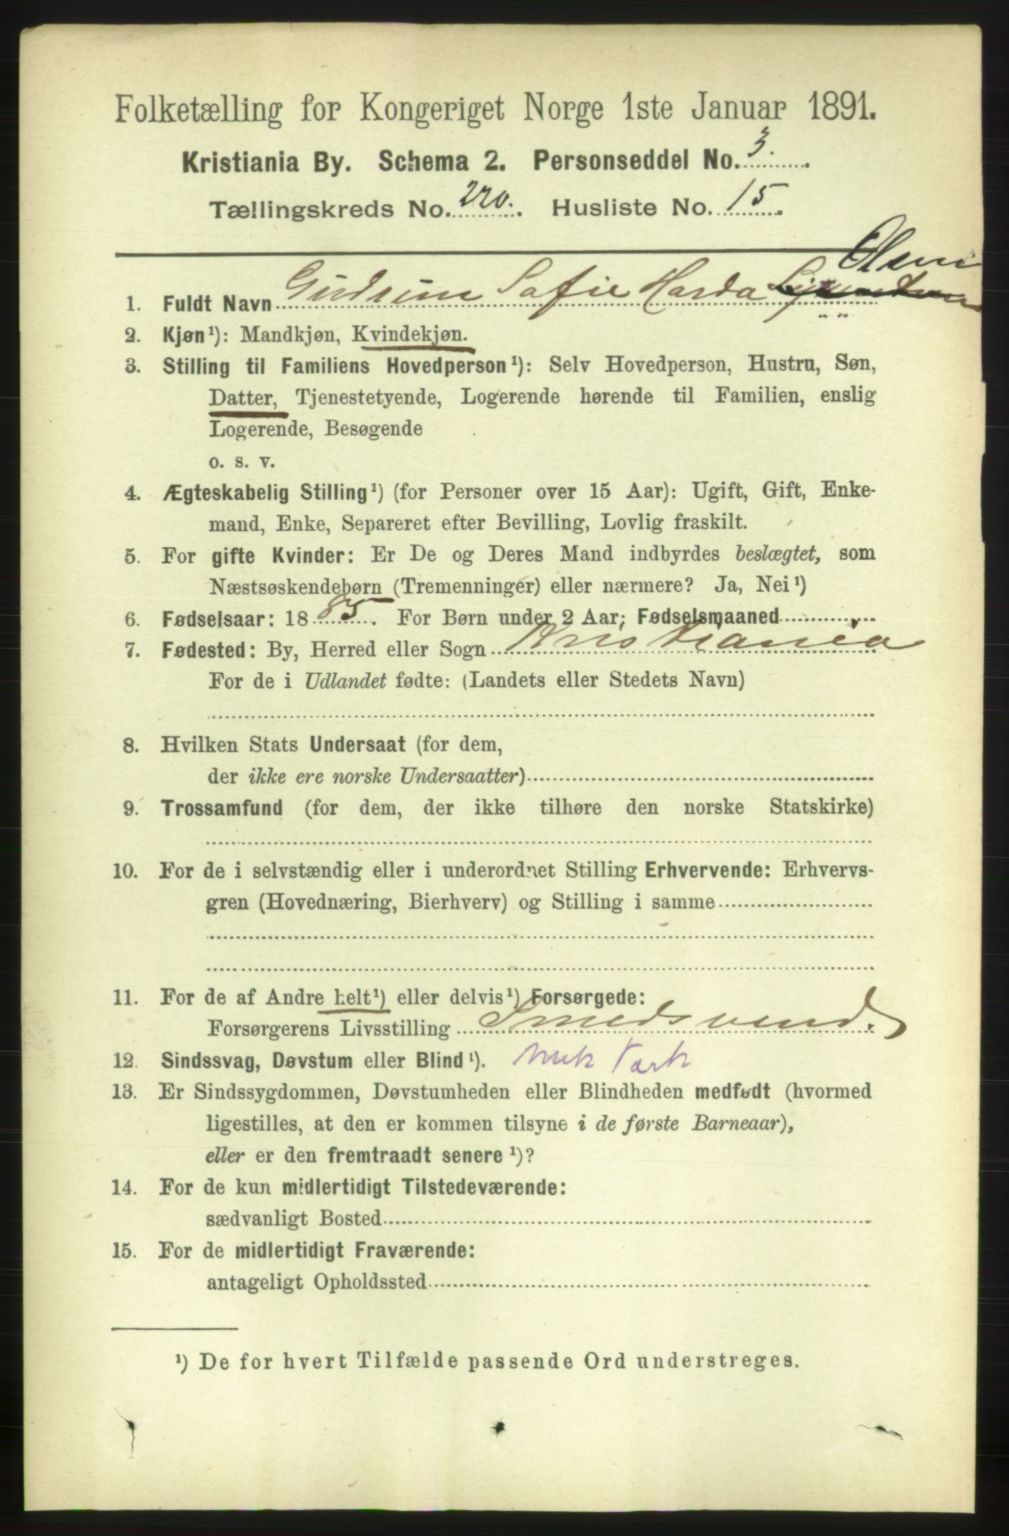 Folketælling for Kongeriget Norge 1ste Januar 1891.
Kristiania By. Schema 2. Personseddel No. 3.
Tællingskreds No. 220. Husliste No. 15.
Olsen
1. Fuldt Navn Gudrun Sofie Harda
2. Kjøn¹): Mandkjøn, Kvindekjøn.
3. Stilling til Familiens Hovedperson¹): Selv Hovedperson, Hustru, Søn,
Datter, Tjenestetyende, Logerende hørende til Familien, enslig
Logerende, Besøgende
o. s. v.
4. Ægteskabelig Stilling¹) (for Personer over 15 Aar): Ugift, Gift, Enke-
mand, Enke, Separeret efter Bevilling, Lovlig fraskilt.
5. For gifte Kvinder: Er De og Deres Mand indbyrdes beslægtet, som
Næstsøskendebørn (Tremenninger) eller nærmere? Ja, Nei¹)
6. Fødselsaar: 1885. For Børn under 2 Aar; Fødselsmaaned
7. Fødested: By, Herred eller Sogn Kristiania
For de i Udlandet fødte: (Landets eller Stedets Navn)
8. Hvilken Stats Undersaat (for dem,
der ikke ere norske Undersaatter)
9. Trossamfund (for dem, der ikke tilhøre den norske Statskirke)
10. For de i selvstændig eller i underordnet Stilling Erhvervende: Erhvervs-
gren (Hovednæring, Bierhverv) og Stilling i samme
11. For de af Andre helt¹) eller delvis¹) Forsørgede:
Forsørgerens Livsstilling Smedsvend.
12. Sindssvag, Døvstum eller Blind¹). Mek Værk
13. Er Sindssygdommen, Døvstumheden eller Blindheden medfødt (hvormed
ligestilles, at den er kommen tilsyne i de første Barneaar),
eller er den fremtraadt senere¹)?
14. For de kun midlertidigt Tilstedeværende:
sædvanligt Bosted
15. For de midlertidigt Fraværende:
antageligt Opholdssted
¹) De for hvert Tilfælde passende Ord understreges.